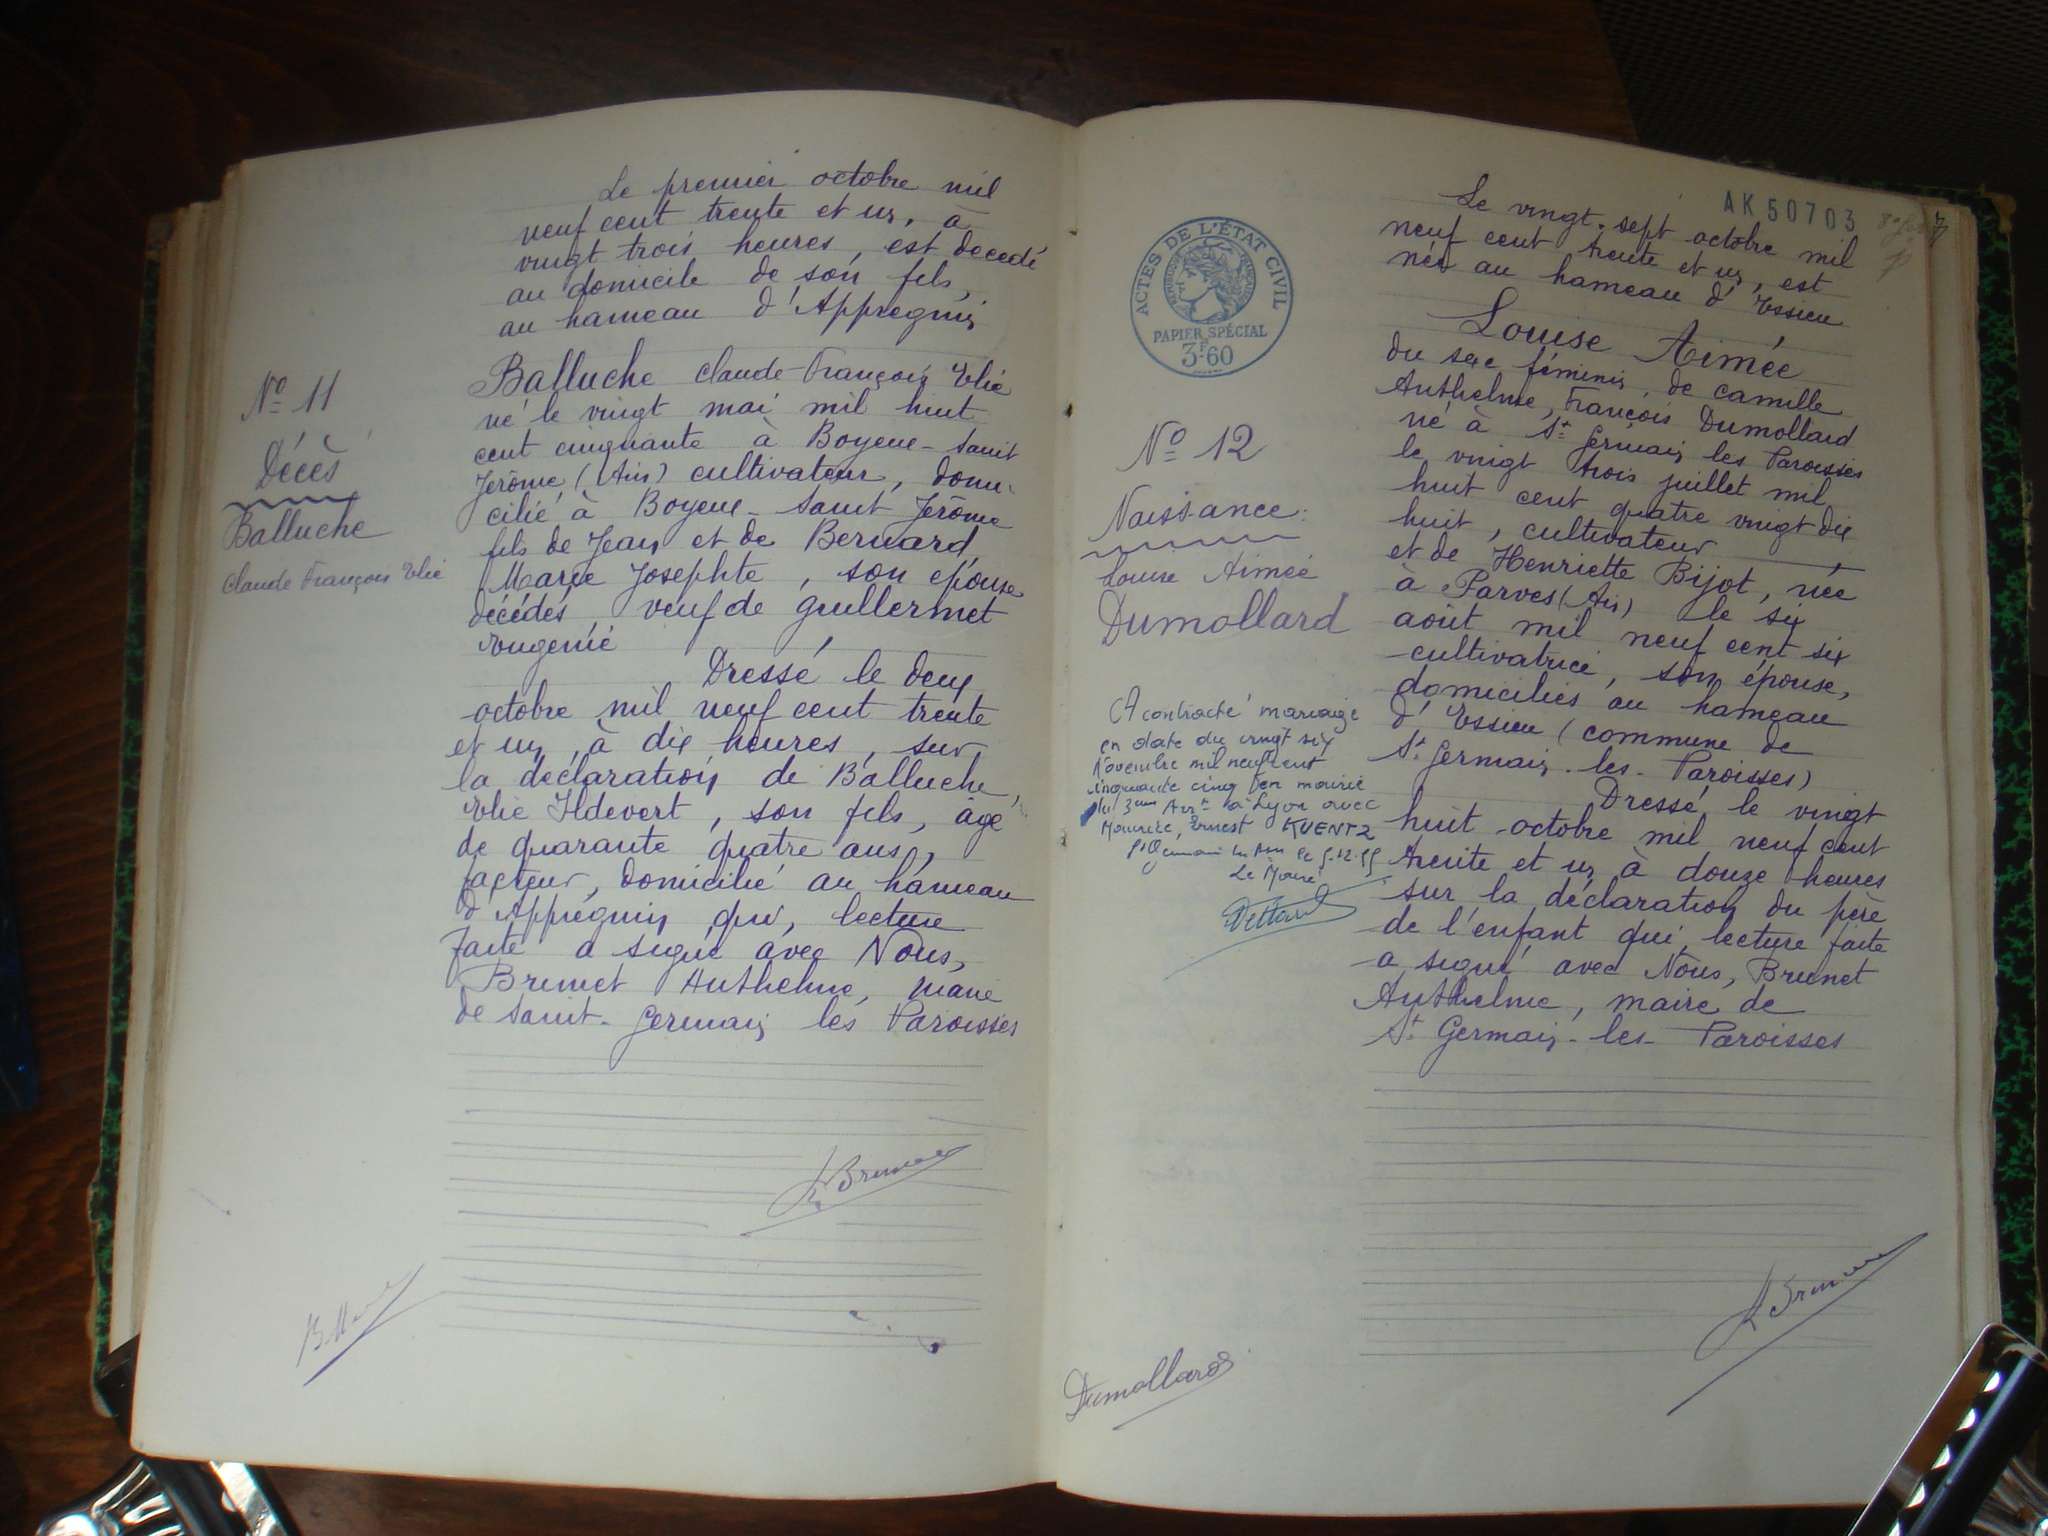 Le premier octobre mil
neuf cent trente et un, à
vingt trois heures, est décédé
au domicile de son fils,
au hameau d'Appregnin
N° 11
Décès
Balluche
Claude François Elie
Balluche Claude-François Elie
né le vingt mai mil huit
cent cinquante à Boyeux-Saint
Jérôme (Ain) cultivateur, domi-
cilié à Boyeux-Saint Jérôme
fils de Jean et de Bernard
Marie Josephte, son épouse
décédés, veuf de Guillermet
Eugénie
Dressé le deux
octobre mil neuf cent trente
et un, à dix heures, sur
la déclaration de Balluche,
Elie Ildevert, son fils, âgé
de quarante quatre ans,
facteur, domicilié au hameau
d'Appregnin qui, lecture
faite a signé avec Nous,
Brunet Anthelme, maire
de Saint-Germain les Paroisses
Brunet
AK 50703
ACTES DE L'ÉTAT CIVIL
RÉPUBLIQUE FRANÇAISE
PAPIER SPÉCIAL
3F.60
N° 12
Naissance:
Louise Aimée
Dumollard
A contracté mariage
en date du vingt six
Novembre mil neuf cent
cinquante cinq en mairie
du 3ème Arrt à Lyon avec
Maurice, Ernest KUENTZ
St Germain les Par le 5.12.55
Le Maire
Le vingt-sept octobre mil
neuf cent trente et un, est
née au hameau d'Essieu
Louise Aimée
du sexe féminin, de Camille
Anthelme, François Dumollard
né à St Germain les Paroisses
le vingt trois juillet mil
huit cent quatre vingt dix
huit, cultivateur
et de Henriette Bijot, née
à Parves (Ain) le six
août mil neuf cent six
cultivatrice, son épouse,
domiciliés au hameau
d'Essieu (commune de
St Germain-les-Paroisses)
Dressé le vingt
huit octobre mil neuf cent
trente et un à douze heures
sur la déclaration du père
de l'enfant qui, lecture faite
a signé avec Nous, Brunet
Anthelme, maire de
St Germain-les-Paroisses
Brunet
Dumollard